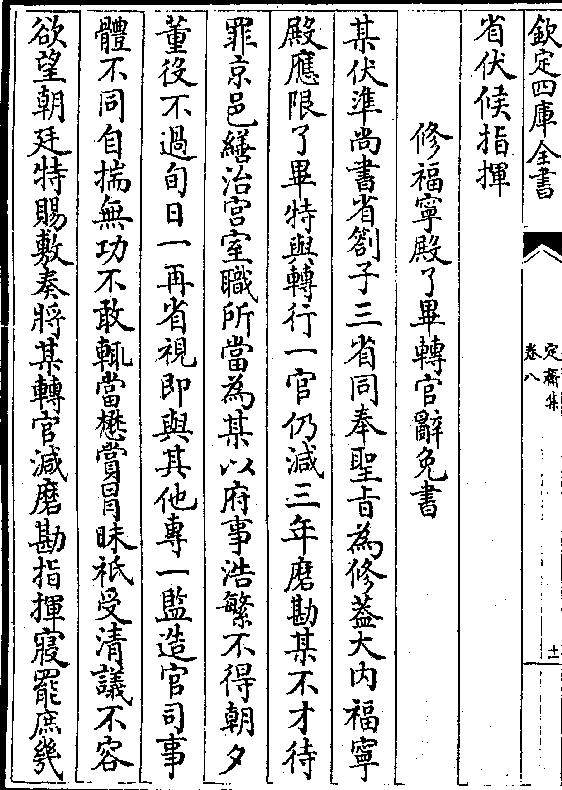 欽定四庫全書
定齋集
卷八
十
省伏候指揮
修福寧殿了畢轉官辭免書
某伏準尚書省劄子三省同奉聖旨為修葢大内福寧
殿應限了畢特與轉行一官仍減三年磨勘某不才待
罪京邑繕治宫室職所當為某以府事浩繁不得朝夕
董役不過旬日一再省視即與其他專一監造官司事
體不同自揣無功不敢輒當懋賞冒昧祗受清議不容
欲望朝廷特賜敷奏將某轉官減磨勘指揮寢罷庶幾